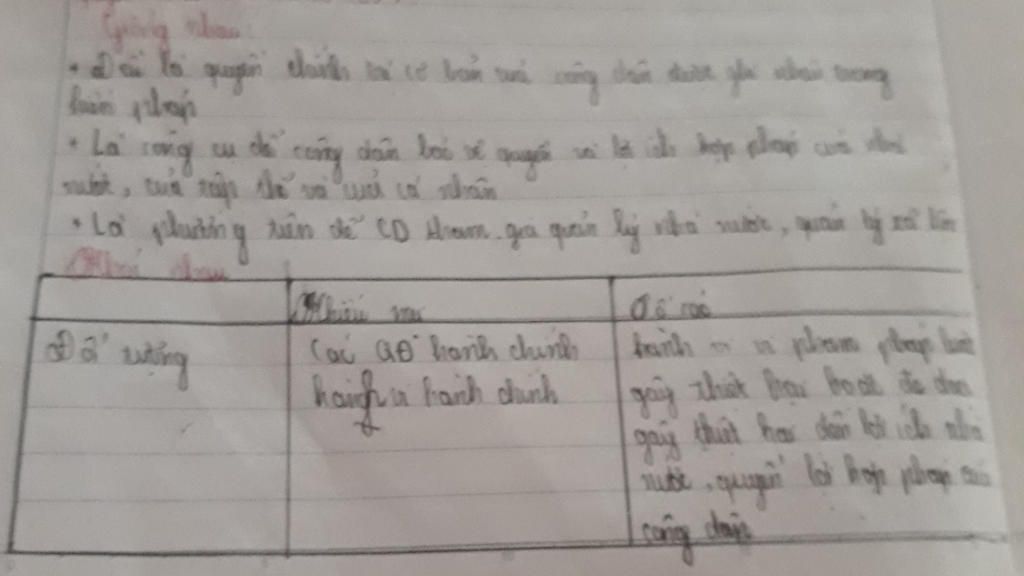 Giống nhau:
• Đều là quyền chính trị cơ bản của công dân được ghi nhận trong
hiến pháp
• Là công cụ để công dân bảo vệ quyền và lợi ích hợp pháp của nhà
nước, của tập thể và của cá nhân
• Là phương tiện để CD tham gia quản lý nhà nước, quản lý xã hội
Khác nhau
Khiếu nại Tố cáo
Đối tượng Các QĐ hành chính hành vi vi phạm pháp luật
hành vi hành chính gây thiệt hại hoặc đe dọa
gây thiệt hại đến lợi ích nhà
nước, quyền lợi hợp pháp của
công dân